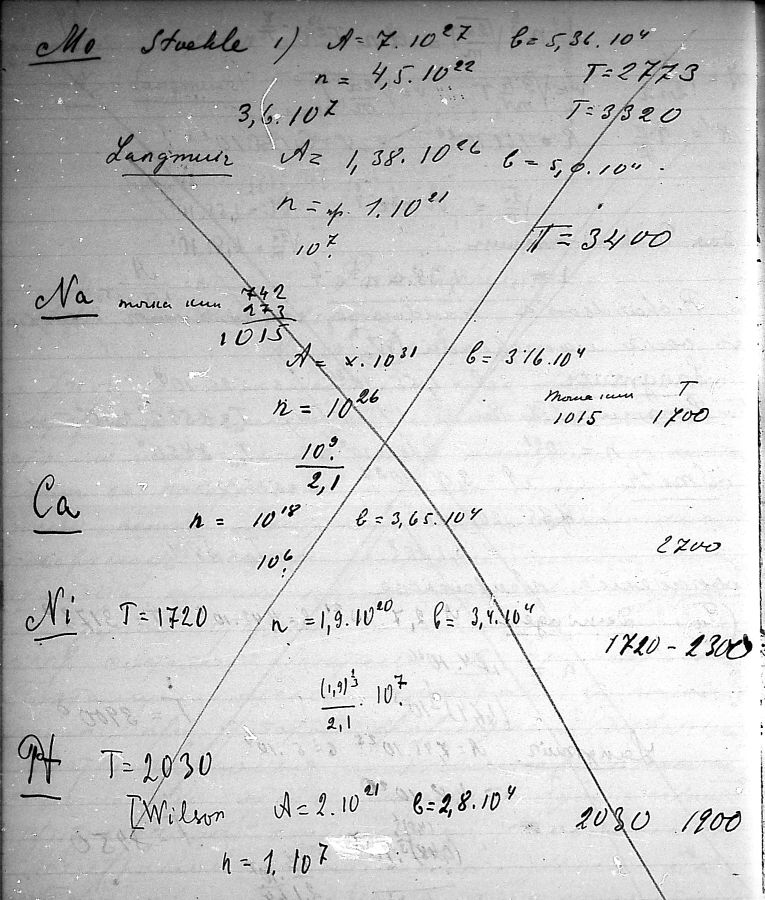 Mo Stoekle 1) A = 7.10²⁷ b = 5,36.10⁴
n = 4,5.10²² T = 2773
3,6.10⁷ T = 3320
Langmuir A = 1,38.10²⁶ b = 5,0.10⁴.
n = 1.10²¹
10⁷. T = 3400
Na точка кип 742
273
1015
A = x.10³¹ b = 316.10⁴
n = 10²⁶ точка кип T
1015 1700
10⁹
2,1
Ca n = 10¹⁸ b = 3,65.10⁴
10⁶. 2700
Ni T = 1720 n = 1,9.10²⁰ b = 3,4.10⁴
1720 - 2300
(1,9)^⅓ . 10⁷.
2,1
Pt T = 2030
[Wilson A = 2.10²¹ b = 2,8.10⁴ 2030 1900
n = 1.10⁷